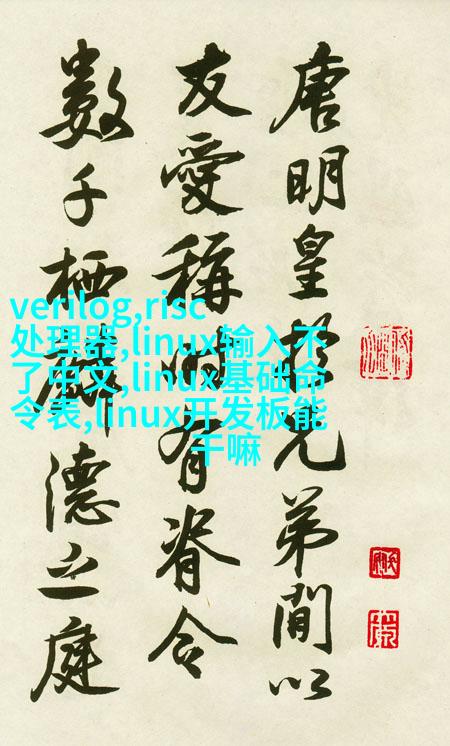 唐明皇於兄弟間以
友愛稱時有脊令
數千栖麟德之庭
verilog,risc
处理器,linux输入不
了中文,linux基础命
令表,linux开发板能
干嘛